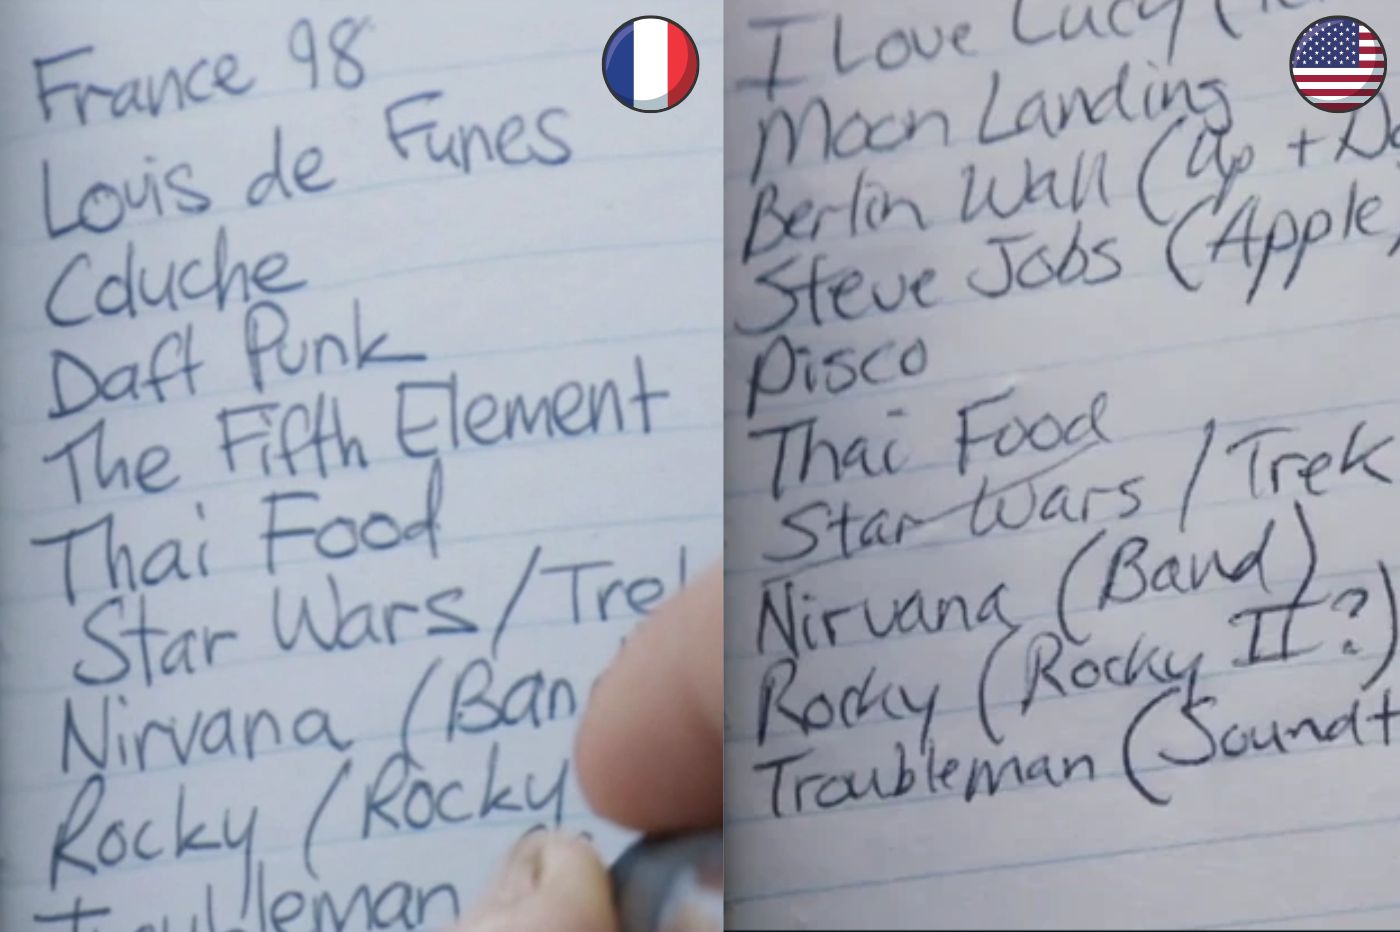 France 98
Louis de Funes
Coluche
Daft Punk
The Fifth Element
Thai Food
Star Wars / Tre
Nirvana (Ban
Rocky (Rocky
Troubleman
I Love Lucy (
Moon Landing
Berlin Wall (Up + Do
Steve Jobs (Apple)
Disco
Thai Food
Star Wars / Trek
Nirvana (Band)
Rocky (Rocky II?)
Troubleman (Soundt